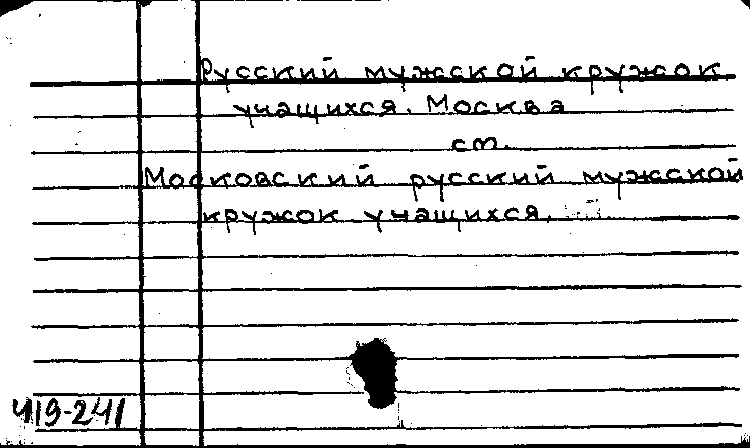 Русский мужской кружок
учащихся. Москва
см.
Московский русский мужской
кружок учащихся.
419-241